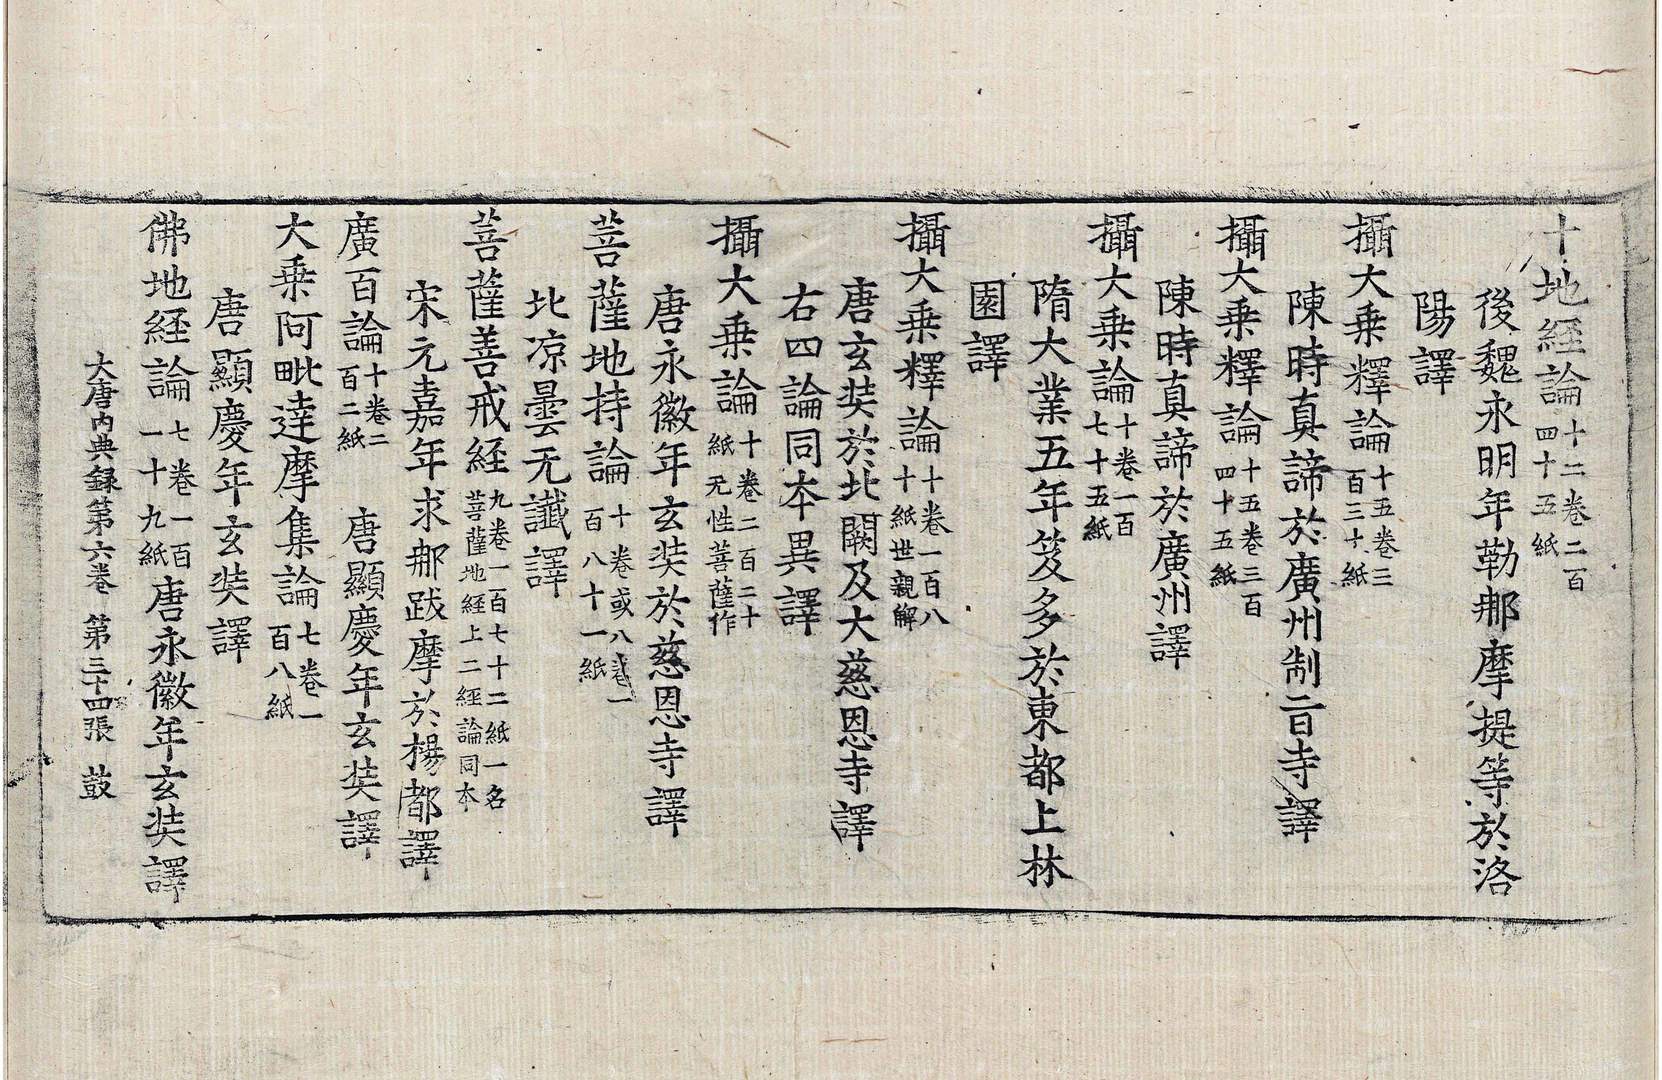 十地経論十二卷二百四十五紙
後魏永明年勒那摩提等於洛
陽譯
攝大乗釋論十五卷三百三十紙
陳時真諦於廣州制旨寺譯
攝大乗釋論十五卷三百四十五紙
陳時真諦於廣州譯
攝大乗論十卷一百七十五紙
隋大業五年笈多於東都上林
園譯
攝大乗釋論十卷一百八十紙世親解
唐玄奘於北闕及大慈恩寺譯
右四論同本異譯
攝大乗論十卷二百二十紙无性菩薩作
唐永徽年玄奘於慈恩寺譯
菩薩地持論十卷或八卷一百八十一紙
北凉曇无讖譯
菩薩善戒経九卷一百七十二紙一名菩薩地経上二経論同本
宋元嘉年求那跋摩於楊都譯
廣百論十卷二百二紙 唐顯慶年玄奘譯
大乗阿毗達摩集論七卷一百八紙
唐顯慶年玄奘譯
佛地経論七卷一百一十九紙唐永徽年玄奘譯
大唐内典録第六卷 第三十四張 鼓